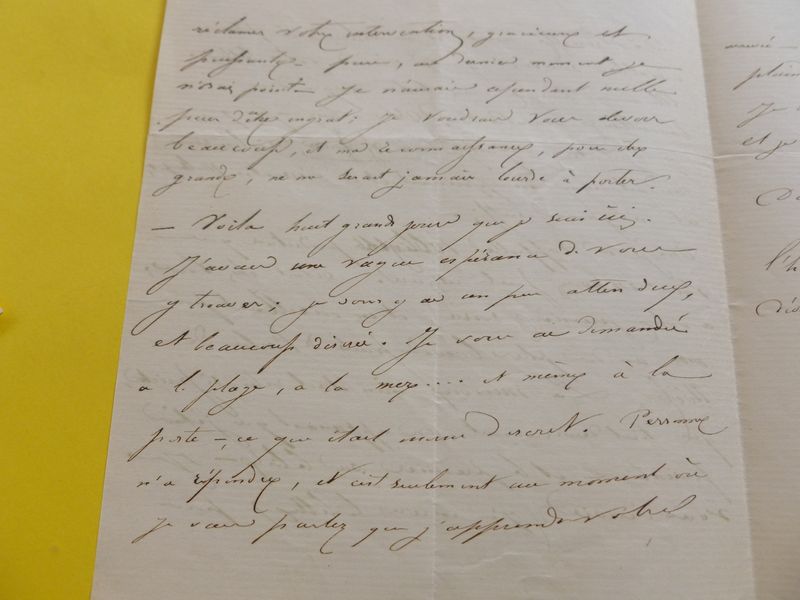 réclamer votre intervention, gracieuse et
puissante – puis, au dernier moment je
n'osai point – Je n'aurais cependant nulle
peur d'être ingrat; je voudrais vous devoir
beaucoup, et ma reconnaissance, pour être
grande, ne me serait jamais lourde à porter.
– Voilà huit grands jours que je suis ici.
J'avais une vague espérance de vous
y trouver; je vous y ai un peu attendue,
et beaucoup désirée. Je vous ai demandée
à la plage, à la mer.... et même à la
poste – ce que était moins discret. Personne
n'a répondu, et c'est seulement au moment où
je vais partir que j'apprends votre
arrivé –
plai
Je
et je
l'h